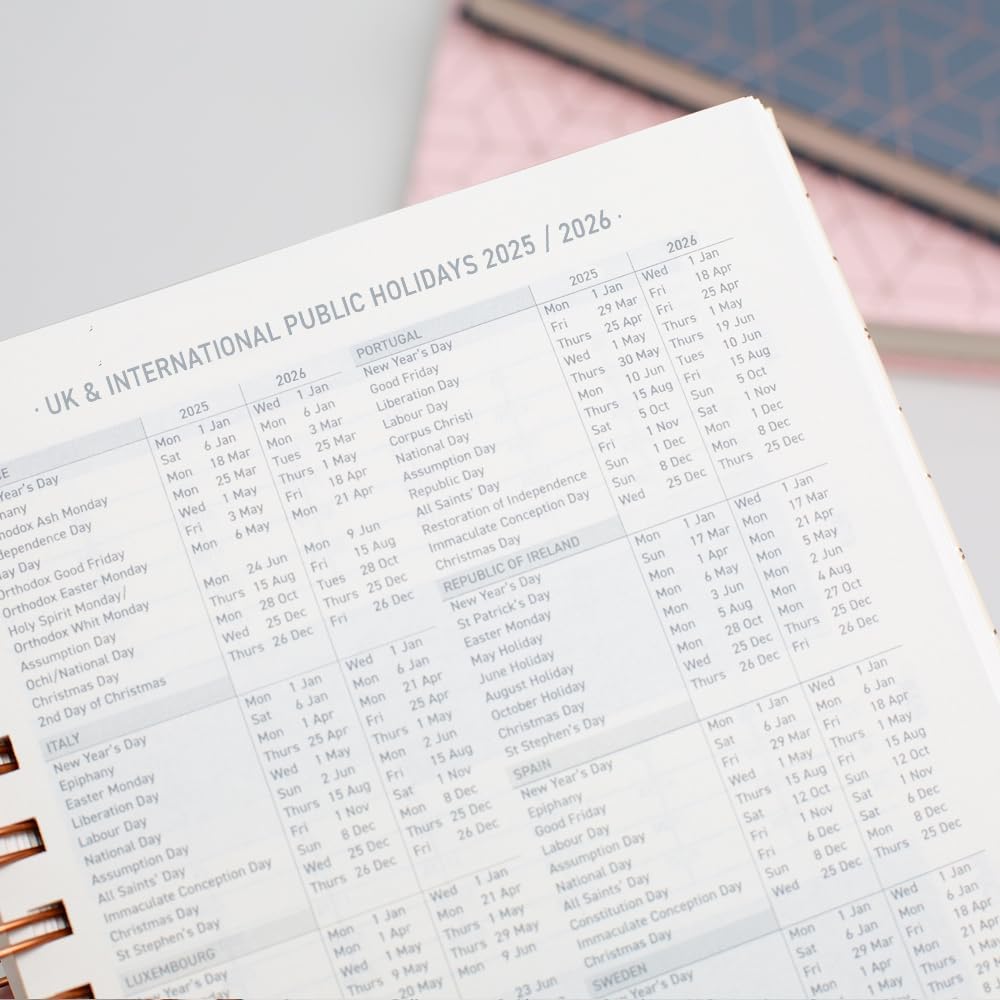 · UK & INTERNATIONAL PUBLIC HOLIDAYS 2025 / 2026 ·
CE 2025 2026
Year's Day Mon 1 Jan Wed 1 Jan
hany Sat 6 Jan Mon 6 Jan
hodox Ash Monday Mon 18 Mar Mon 3 Mar
dependence Day Mon 25 Mar Tues 25 Mar
ay Day Wed 1 May Thurs 1 May
Orthodox Good Friday Fri 3 May Fri 18 Apr
Orthodox Easter Monday Mon 6 May Mon 21 Apr
Holy Spirit Monday/
Orthodox Whit Monday Mon 24 Jun Mon 9 Jun
Assumption Day Thurs 15 Aug Fri 15 Aug
Ochi/National Day Mon 28 Oct Tues 28 Oct
Christmas Day Wed 25 Dec Thurs 25 Dec
2nd Day of Christmas Thurs 26 Dec Fri 26 Dec
ITALY
New Year's Day Mon 1 Jan Wed 1 Jan
Epiphany Sat 6 Jan Mon 6 Jan
Easter Monday Mon 1 Apr Mon 21 Apr
Liberation Day Thurs 25 Apr Fri 25 Apr
Labour Day Wed 1 May Thurs 1 May
National Day Sun 2 Jun Mon 2 Jun
Assumption Day Thurs 15 Aug Fri 15 Aug
All Saints' Day Fri 1 Nov Sat 1 Nov
Immaculate Conception Day Sun 8 Dec Mon 8 Dec
Christmas Day Wed 25 Dec Thurs 25 Dec
St Stephen's Day Thurs 26 Dec Fri 26 Dec
LUXEMBOURG
Mon 1 Jan Wed 1 Jan
Mon 1 Apr Mon 21 Apr
Wed 1 May Thurs 1 May
9 May Thurs 29 May
20 May Mon 9 Jun
23 Jun
PORTUGAL 2025 2026
New Year's Day Mon 1 Jan Wed 1 Jan
Good Friday Fri 29 Mar Fri 18 Apr
Liberation Day Thurs 25 Apr Fri 25 Apr
Labour Day Wed 1 May Thurs 1 May
Corpus Christi Thurs 30 May Thurs 19 Jun
National Day Mon 10 Jun Tues 10 Jun
Assumption Day Thurs 15 Aug Fri 15 Aug
Republic Day Sat 5 Oct Sun 5 Oct
All Saints' Day Fri 1 Nov Sat 1 Nov
Restoration of Independence Sun 1 Dec Mon 1 Dec
Immaculate Conception Day Sun 8 Dec Mon 8 Dec
Christmas Day Wed 25 Dec Thurs 25 Dec
REPUBLIC OF IRELAND
New Year's Day Mon 1 Jan Wed 1 Jan
St Patrick's Day Sun 17 Mar Mon 17 Mar
Easter Monday Mon 1 Apr Mon 21 Apr
May Holiday Mon 6 May Mon 5 May
June Holiday Mon 3 Jun Mon 2 Jun
August Holiday Mon 5 Aug Mon 4 Aug
October Holiday Mon 28 Oct Mon 27 Oct
Christmas Day Wed 25 Dec Thurs 25 Dec
St Stephen's Day Thurs 26 Dec Fri 26 Dec
SPAIN
New Year's Day Mon 1 Jan Wed 1 Jan
Epiphany Sat 6 Jan Mon 6 Jan
Good Friday Fri 29 Mar Fri 18 Apr
Labour Day Wed 1 May Thurs 1 May
Assumption Day Thurs 15 Aug Fri 15 Aug
National Day Sat 12 Oct Sun 12 Oct
All Saints' Day Fri 1 Nov Sat 1 Nov
Constitution Day Fri 6 Dec Sat 6 Dec
Immaculate Conception Day Sun 8 Dec Mon 8 Dec
Christmas Day Wed 25 Dec Thurs 25 Dec
SWEDEN
Year's Day Mon 1 Jan Wed 1 Jan
Sat 6 Jan Mon 6 Jan
Fri 29 Mar Fri 18 Apr
Mon 1 Apr Mon 21 Apr
Wed 1 May Thurs 1 May